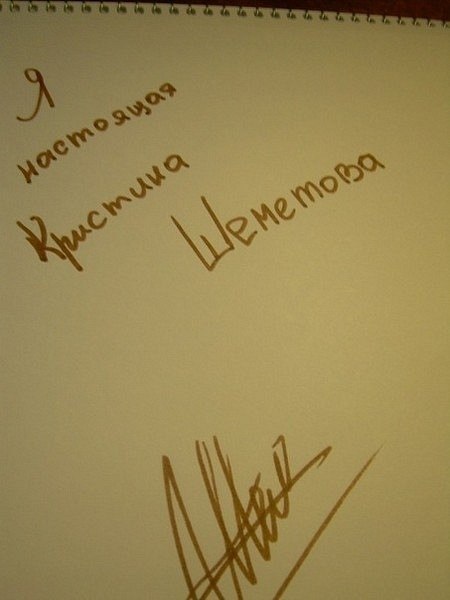 Я
настоящая
Кристина
Шеметова